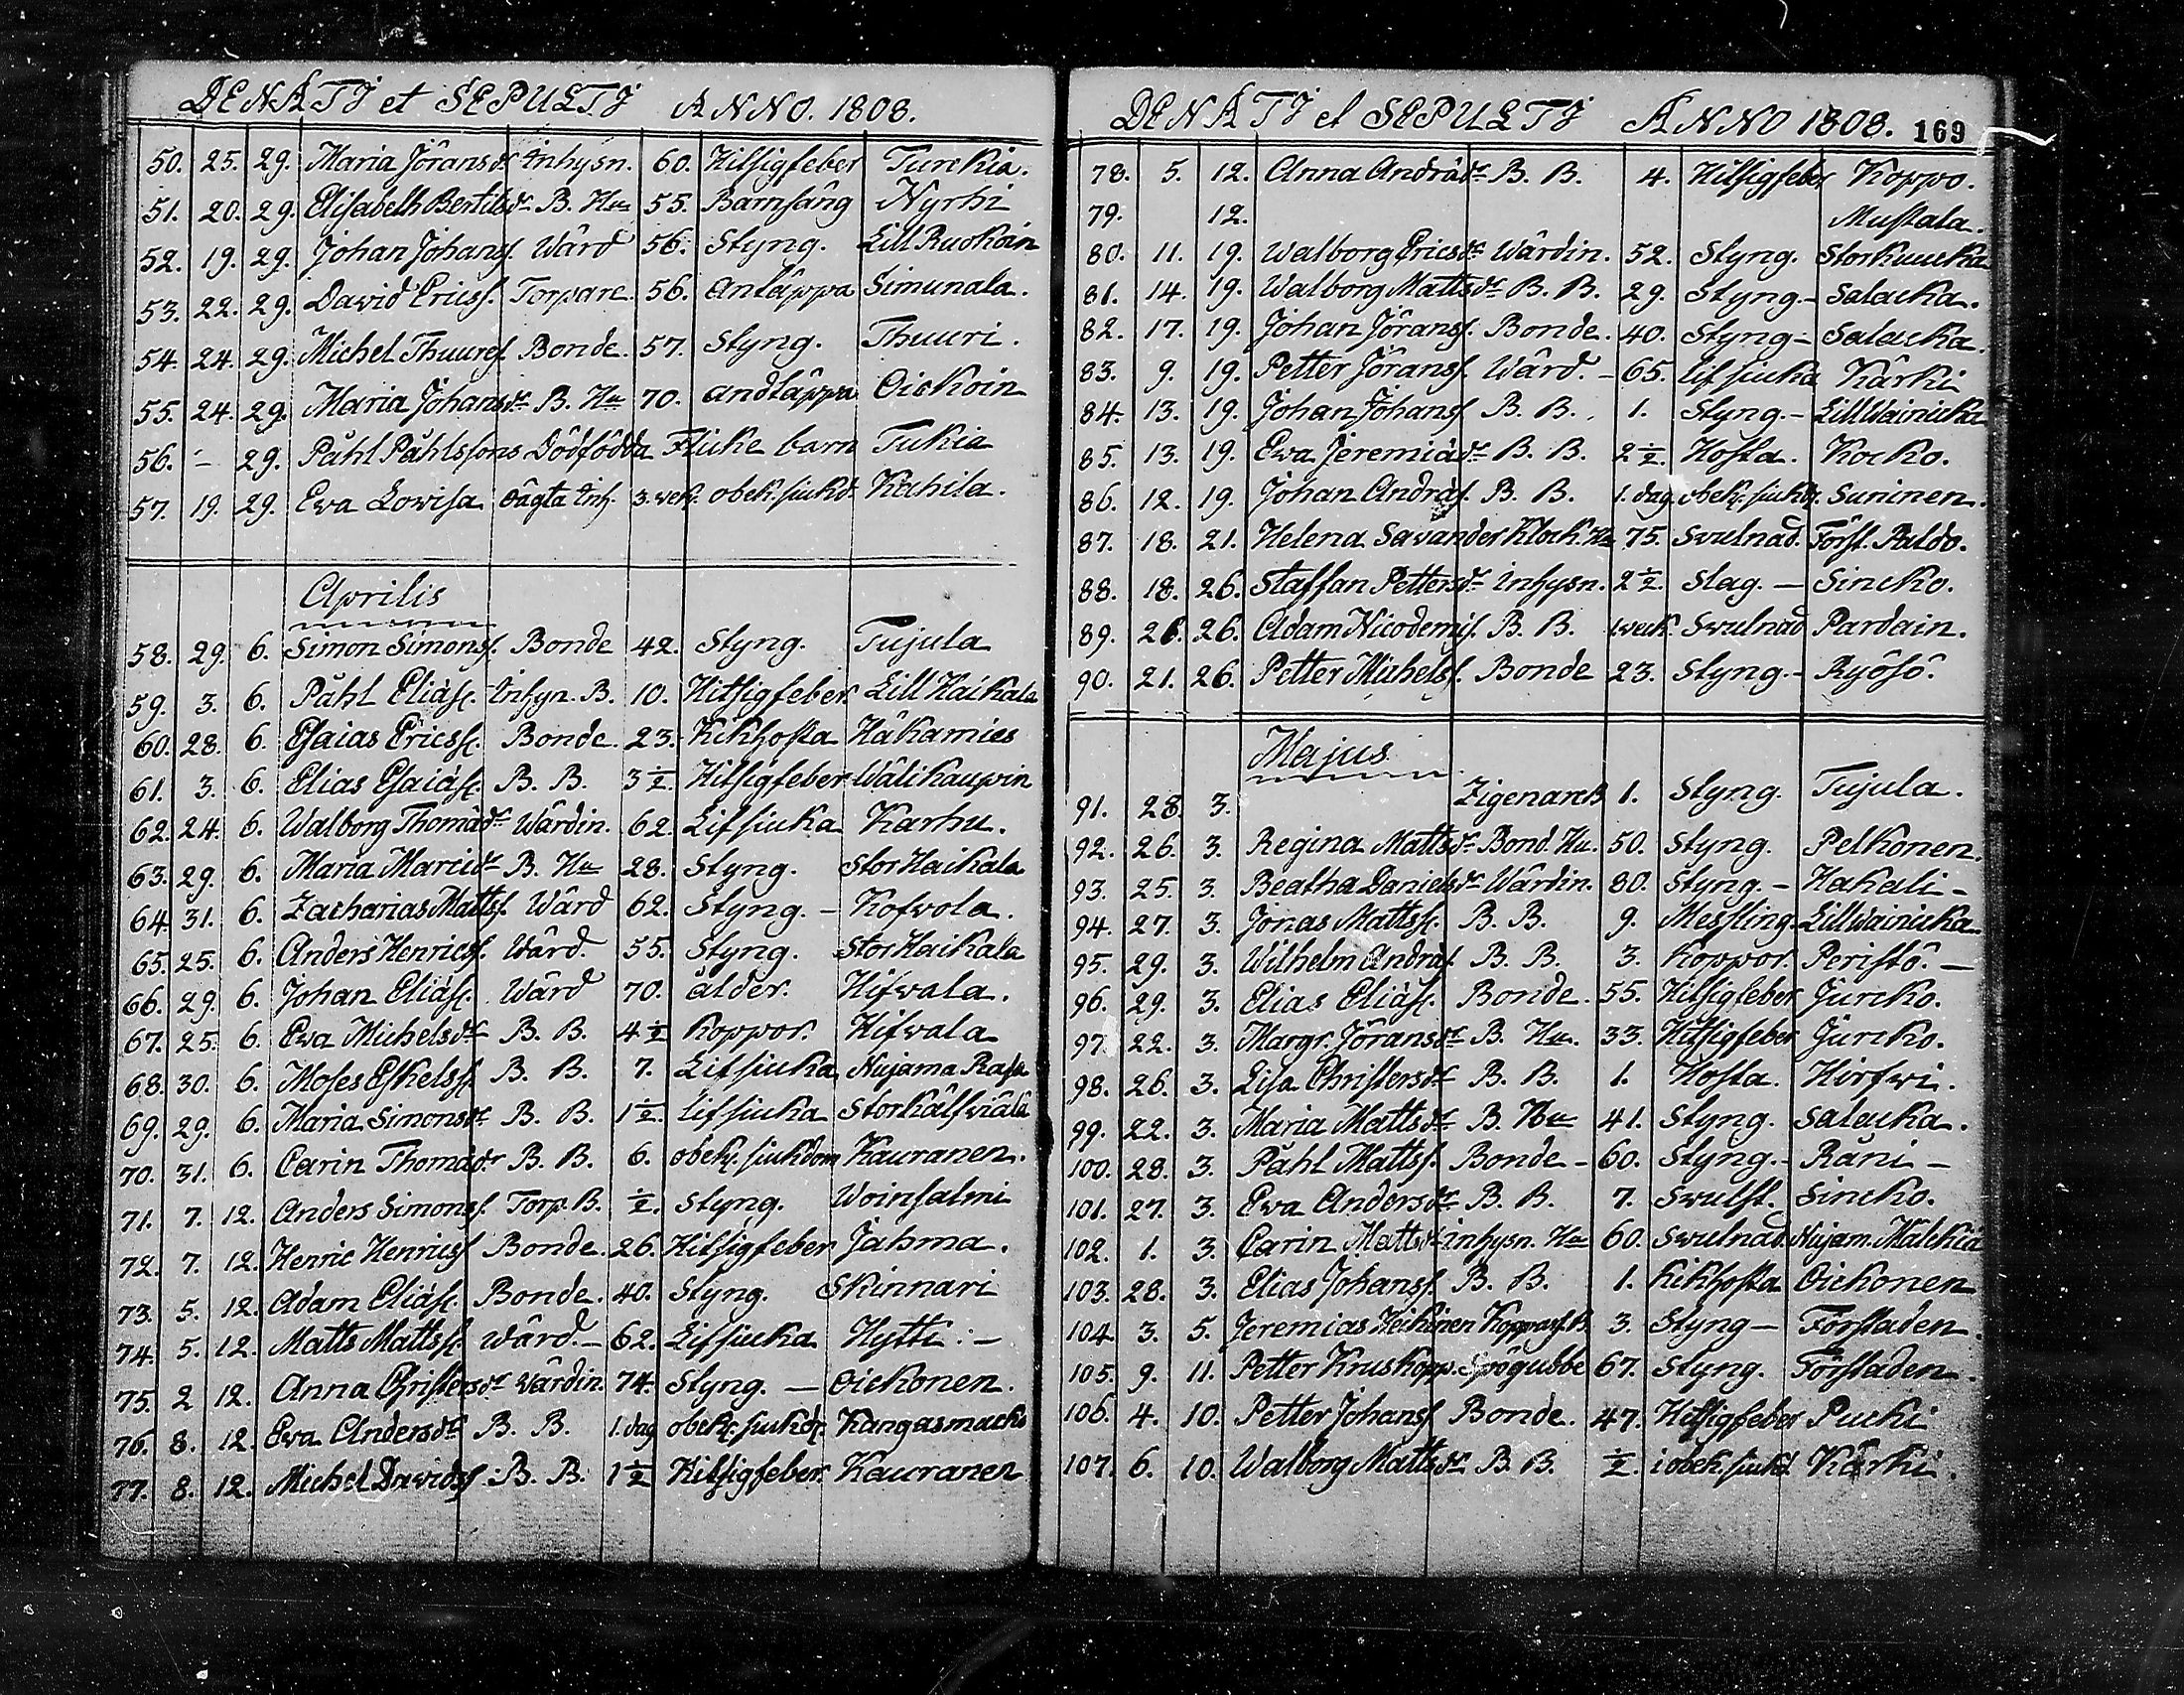 DENATJ et SEPULTJ ANNO. 1808.
50. 25. 29. Maria Jöransdr Inhysn. 60. Hitsigfeber Turckia.
51. 20. 29. Elisabeth Bertilsdr B. Hu 55. Barnsäng Nyrhi
52. 19. 29. Johan Johanss. Wärd 56. Styng. Lill Ruokoin
53. 22. 29. David Ericss. Torpare. 56. Antäppa Simunala.
54. 24. 29. Michel Thuuress. Bonde. 57. Styng. Thuuri.
55. 24. 29. Maria Johansdr B. Hu 70. andtäppa Oickoin
56. - 29. Påhl Påhlssons Dödfödda Flicke barn Tukia
57. 19. 29. Eva Lowisa oägta Inh. 3. wek. obek. siukd. Kahila.
Aprilis
58. 29. 6. Simon Simonss. Bonde 42. Styng. Tujula
59. 3. 6. Påhl Eliæss. Inhyn. B. 10. Hitsigfeber Lill Haikala
60. 28. 6. Esaias Ericss. Bonde. 23. Kikhosta Häkamies
61. 3. 6. Elias Esaiæss. B. B. 3½ Hitsigfeber Wälikaupin
62. 24. 6. Walborg Thomædr Wärdin. 62. Lifsiuka Karhu.
63. 29. 6. Maria Marcidr B. Hu 28. Styng. Stor Haikala
64. 31. 6. Zacharias Mattss. Wärd 62. Styng. - Kofvola.
65. 25. 6. Anders Henricss. Wärd. 55. Styng. Stor Haikala
66. 29. 6. Johan Eliæss. Wärd 70. ålder. Hifwala.
67. 25. 6. Ewa Michelsdr B. B. 4½ Koppor. Hifwala
68. 30. 6. Moses Eskelss. B. B. 7. Lifsiuka Nujama Rasa
69. 29. 6. Maria Simonsdr B. B. 1½. Lifsiuka Storkälfwiälä
70. 31. 6. Carin Thomædr B. B. 6. obek. siukdom Kauranen.
71. 7. 12. Anders Simonss. Torp. B. ½. Styng. Woinsalmi
72. 7. 12. Henric Henricss. Bonde. 26. Hitsigfeber Jahma.
73. 5. 12. Adam Eliæss. Bonde. 40. Styng. Skinnari
74. 5. 12. Matts Mattss. Wärd. - 62. Lifsiuka Hytti. -
75. 2 12. Anna Christersdr Wärdin. 74. Styng. - Oickonen.
76. 8. 12. Ewa Andersdr B. B. 1. dag obek. siukd. Kangasmacko
77. 8. 12. Michel Davidss. B. B. 1½ Hitsigfeber. Kauranen
DENATJ et SEPULTJ ANNO 1808. 169
78. 5. 12. Anna Andrædr B. B. 4. Hitsigfeber Koppo.
79. 12. Mustala.
80. 11. 19. Walborg Ericsdr Wärdin. 52. Styng. Storkuucka
81. 14. 19. Walborg Mattsdr B. B. 29. Styng. - Salacka.
82. 17. 19. Johan Jöranss. Bonde. 40. Styng - Salacka.
83. 9. 19. Petter Jöranss. Wärd. - 65. Lifsiuka Kärki
84. 13. 19. Johan Johanss. B. B. 1. Styng. - LillWainicka
85. 13. 19. Ewa Jeremiædr B. B. 2½. Hosta. Kocko.
86. 12. 19. Johan Andræss. B. B. 1. dag. obek. siukd. Suninen.
87. 18. 21. Helena Savander Klock. Hu 75. Swulnad. Först. Paldo.
88. 18. 26. Staffan Pettersdr Inhysn. 2½. Slag. - Sincko.
89. 26. 26. Adam Nicodemis. B. B. 1 weck. Swulnad Pardain.
90. 21. 26. Petter Michelss. Bonde 23. Styng. - Ryösö.
Majus
91. 28. 3. Zigenare B 1. Styng. Tujula.
92. 26. 3. Regina Mattsdr Bond. Hu. 50. Styng. Pelkonen.
93. 25. 3. Beatha Danielsdr Wärdin. 80. Styng. - Hakali -
94. 27. 3. Jonas Mattss. B. B. 9. Messling. LillWainicka
95. 29. 3. Wilhelm Andræs. B. B. 3. Koppor. Peristö. -
96. 29. 3. Elias Eliæss. Bonde. 55. Hitsigfeber Jurcko.
97. 22. 3. Margr. Jöransdr B. Hu. 33. Hitsigfeber Jurcko.
98. 26. 3. Lisa Christersdr B. B. 1. Hosta. Hirfwi.
99. 22. 3. Maria Mattsdr B. Hu 41. Styng. Salacka.
100. 28. 3. Påhl Mattss. Bonde - 60. Styng. - Räni -
101. 27. 3. Ewa Andersdr B. B. 7. Swulst. Sincko.
102. 1. 3. Carin Mattsdr Inhysn. Hu 60. Swulnad. Nujam. Malckia
103. 28. 3. Elias Johanss. B. B. 1. Kikhosta Oickonen
104. 3. 5. Jeremias Heikinen B. 3. Styng - Förstaden.
105. 9. 11. Petter Kruskopp. Spögubbe 67. Styng. Förstaden.
106. 4. 10. Petter Johanss. Bonde. 47. Hitsigfeber Pucki
107. 6. 10. Walborg Mattsdr B. B. ½. i obek. siukd. Kärki.